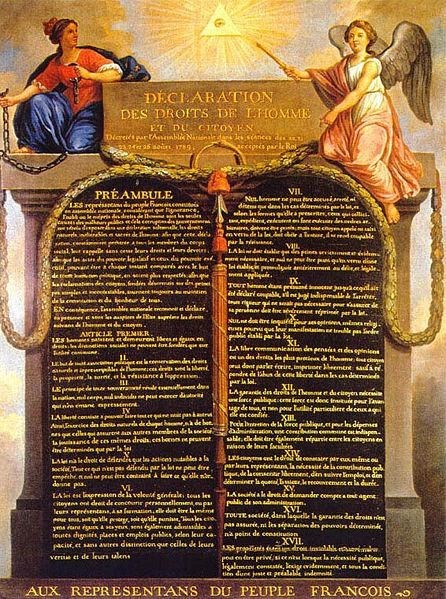 DÉCLARATION
DES DROITS DE L'HOMME
ET DU CITOYEN
Décrétés par l'Assemblée Nationale dans les séances des 20, 21
23, 24 et 26 août 1789, acceptés par le Roi
PRÉAMBULE
LES représentans du peuple François, constitués
en assemblée nationale, considérant que l'ignorance,
l'oubli ou le mépris des droits de l'homme sont les seules
causes des malheurs publics et de la corruption des gouvernemens
ont résolu d'exposer dans une déclaration solemnelle, les droits
naturels, inaliénables et sacrés de l'homme; afin que cette décla-
ration, constamment présente a tous les membres du corps
social, leur rappelle sans cesse leurs droits et leurs devoirs;
afin que les actes du pouvoir législatif et ceux du pouvoir exé-
cutif, pouvant être à chaque instant comparés avec le but
de toute institution politique, en soient plus respectés; afin que
les réclamations des citoyens, fondées désormais sur des princi-
pes simples et incontestables, tournent toujours au maintien
de la constitution et du bonheur de tous.
EN conséquence, l'assemblée nationale reconnoit et déclare,
en présence et sous les auspices de l'Etre suprême les droits
suivans de l'homme et du citoyen.
ARTICLE PREMIER.
LES hommes naissent et demeurent libres et égaux en
droits, les distinctions sociales ne peuvent être fondées que sur
l'utilité commune.
II.
LE but de toute association politique est la conservation des droits
naturels et imprescriptibles de l'homme; ces droits sont la liberté,
la propriété, la sureté, et la résistance à l'oppression.
III.
LE principe de toute souveraineté réside essentiellement dans
la nation, nul corps, nul individu ne peut exercer d'autorité
qui n'en émane expressément.
IV.
LA liberté consiste à pouvoir faire tout ce qui ne nuit pas à autrui
Ainsi, l'exercice des droits naturels de chaque homme, n'a de bor-
nes que celles qui assurent aux autres membres de la société
la jouissance de ces mêmes droits; ces bornes ne peuvent
être déterminées que par la loi
V.
LA loi n'a le droit de défendre que les actions nuisibles à la
société. Tout ce qui n'est pas défendu par la loi ne peut être
empêché, et nul ne peut être contraint à faire ce qu'elle n'or-
donne pas.
VI.
LA loi est l'expression de la volonté générale; tous les
citoyens ont droit de concourir personnellement, ou par
leurs représentans, à sa formation; elle doit être la même
pour tous, soit qu'elle protege, soit qu'elle punisse. Tous les cito-
yens étant égaux à ses yeux, sont également admissibles à
toutes dignités, places et emplois publics, selon leur ca-
pacité, et sans autres distinction que celles de leurs
vertus et de leurs talens
VII.
NUL homme ne peut être accusé, arreté, ni
détenu que dans les cas déterminés par la loi, et
selon les formes qu'elle a prescrites, ceux qui sollici-
tent, expédient, exécutent ou font exécuter des ordres ar-
bitraires, doivent être punis; mais tout citoyen appelé ou saisi
en vertu de la loi, doit obéir à l'instant, il se rend coupable
par la résistance.
VIII.
LA loi ne doit établir que des peines strictement et évidemment
nécessaires, et nul ne peut être puni qu'en vertu d'une
loi établie et promulguée antérieurement au délit, et légale-
ment appliquée.
IX.
TOUT homme étant présumé innocent jusqu'à ce qu'il ait
été déclaré coupable, s'il est jugé indispensable de l'arrêter,
toute rigueur qui ne serait pas nécessaire pour s'assurer de
sa personne doit être sévèrement réprimée par la loi.
X.
NUL ne doit être inquiété pour ses opinions, mêmes religi-
euses pourvu que leur manifestation ne trouble pas l'ordre
public établi par la loi.
XI.
LA libre communication des pensées et des opinions
est un des droits les plus précieux de l'homme; tout citoyen
peut donc parler, écrire, imprimer librement; sauf à ré-
pondre de l'abus de cette liberté dans les cas déterminés
par la loi.
XII.
LA garantie des droits de l'homme et du citoyen nécessite
une force publique; cette force est donc instituée pour l'avan-
tage de tous, et non pour l'utilité particuliere de ceux a qui
elle est confiée.
XIII.
POUR l'entretien de la force publique, et pour les dépenses
d'administration, une contribution commune est indispen-
sable; elle doit être également répartie entre les citoyens en
raison de leurs facultés.
XIV.
LES citoyens ont le droit de constater par eux même ou
par leurs représentans, la nécessité de la contribution pub-
lique, de la consentir librement, d'en suivre l'emploi, et d'en
déterminer la quotité, l'assiette, le recouvrement et la durée.
XV.
LA société a le droit de demander compte a tout agent
public de son administration.
XVI.
TOUTE société, dans laquelle la garantie des droits n'est
pas assurée, ni les séparation des pouvoirs déterminée,
n'a point de constitution
XVII.
LES propriétés étant un droit inviolable et sacré, nul ne
peut en être privé, si ce n'est lorsque la nécessité publique,
légalement constatée, l'exige évidemment, et sous la condi-
tion d'une juste et préalable indemnité.
AUX REPRESENTANS DU PEUPLE FRANCOIS